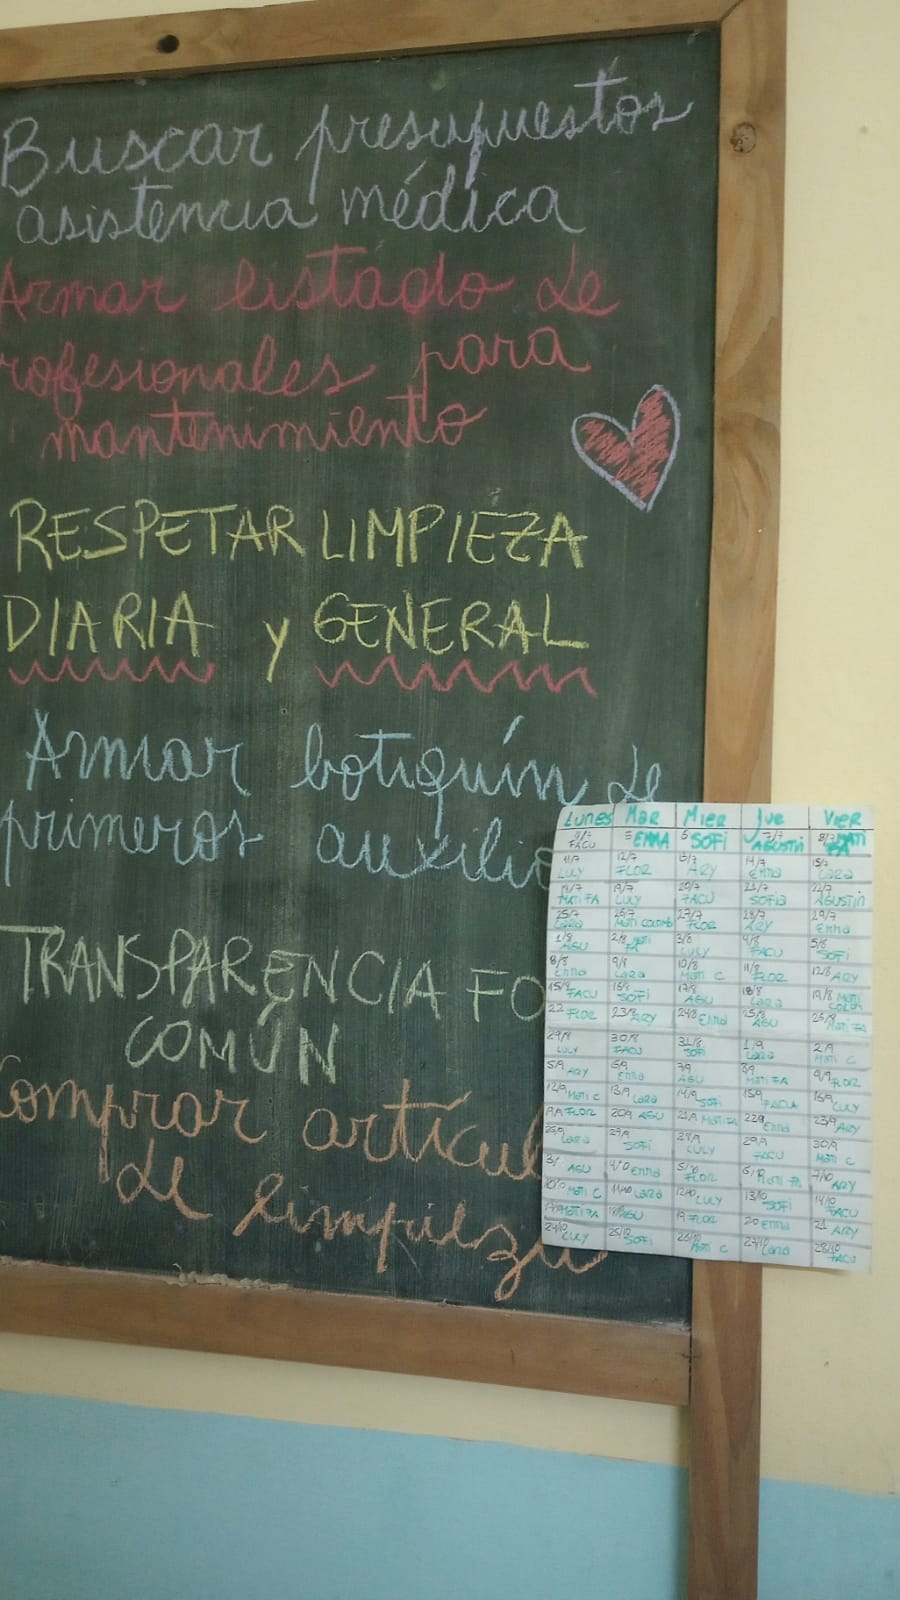 Buscar presupuestos
asistencia médica
Armar listado de
rofesionales para
mantenimiento
RESPETAR LIMPIEZA
DIARIA y GENERAL
Armar botiquín de
primeros auxilio
TRANSPARENCIA FO
COMÚN
Comprar artícul
de limpieza
Lunes Mar Mier Jue Vier
4/7 FACU 5 EMMA 6 SOFI 7/7 AGUSTIN 8/7 MATI FA
11/7 LULY 12/7 FLOR 13/7 ARY 14/7 Emma 15/7 Lara
18/7 MATI FA 19/7 LULY 20/7 FACU 21/7 SOFIA 22/7 AGUSTIN
25/7 Lara 26/7 Mati Colomb 27/7 FLOR 28/7 ARY 29/7 Emma
1/8 AGU 2/8 Mati FA 3/8 LULY 4/8 FACU 5/8 SOFI
8/8 Emma 9/8 Lara 10/8 Mati C 11/8 FLOR 12/8 ARY
15/8 FACU 16/8 SOFI 17/8 AGU 18/8 Lara 19/8 Mati Colom
22 FLOR 23/8 ARY 24/8 Emma 25/8 AGU 26/8 Mati FA
29/8 LULY 30/8 FACU 31/8 SOFI 1/9 Lara 2/9 Mati C
5/9 ARY 6/9 Emma 7/9 AGU 8/9 Mati FA 9/9 FLOR
12/9 Mati C 13/9 Lara 14/9 SOFI 15/9 FACU 16/9 LULY
FLOR 20/9 AGU 21/9 Mati FA 22/9 Emma 23/9 ARY
26/9 Lara 27/9 SOFI 28/9 LULY 29/9 FACU 30/9 Mati C
3/ AGU 4/10 Emma 5/10 FLOR 6/10 Mati FA 7/10 ARY
10/10 Mati C 11/10 Lara 12/10 LULY 13/10 SOFI 14/10 FACU
Mati FA AGU 19 FLOR 20 Emma 21 ARY
24/10 LULY 25/10 SOFI 26/10 Mati C 27/10 Lara 28/10 FACU